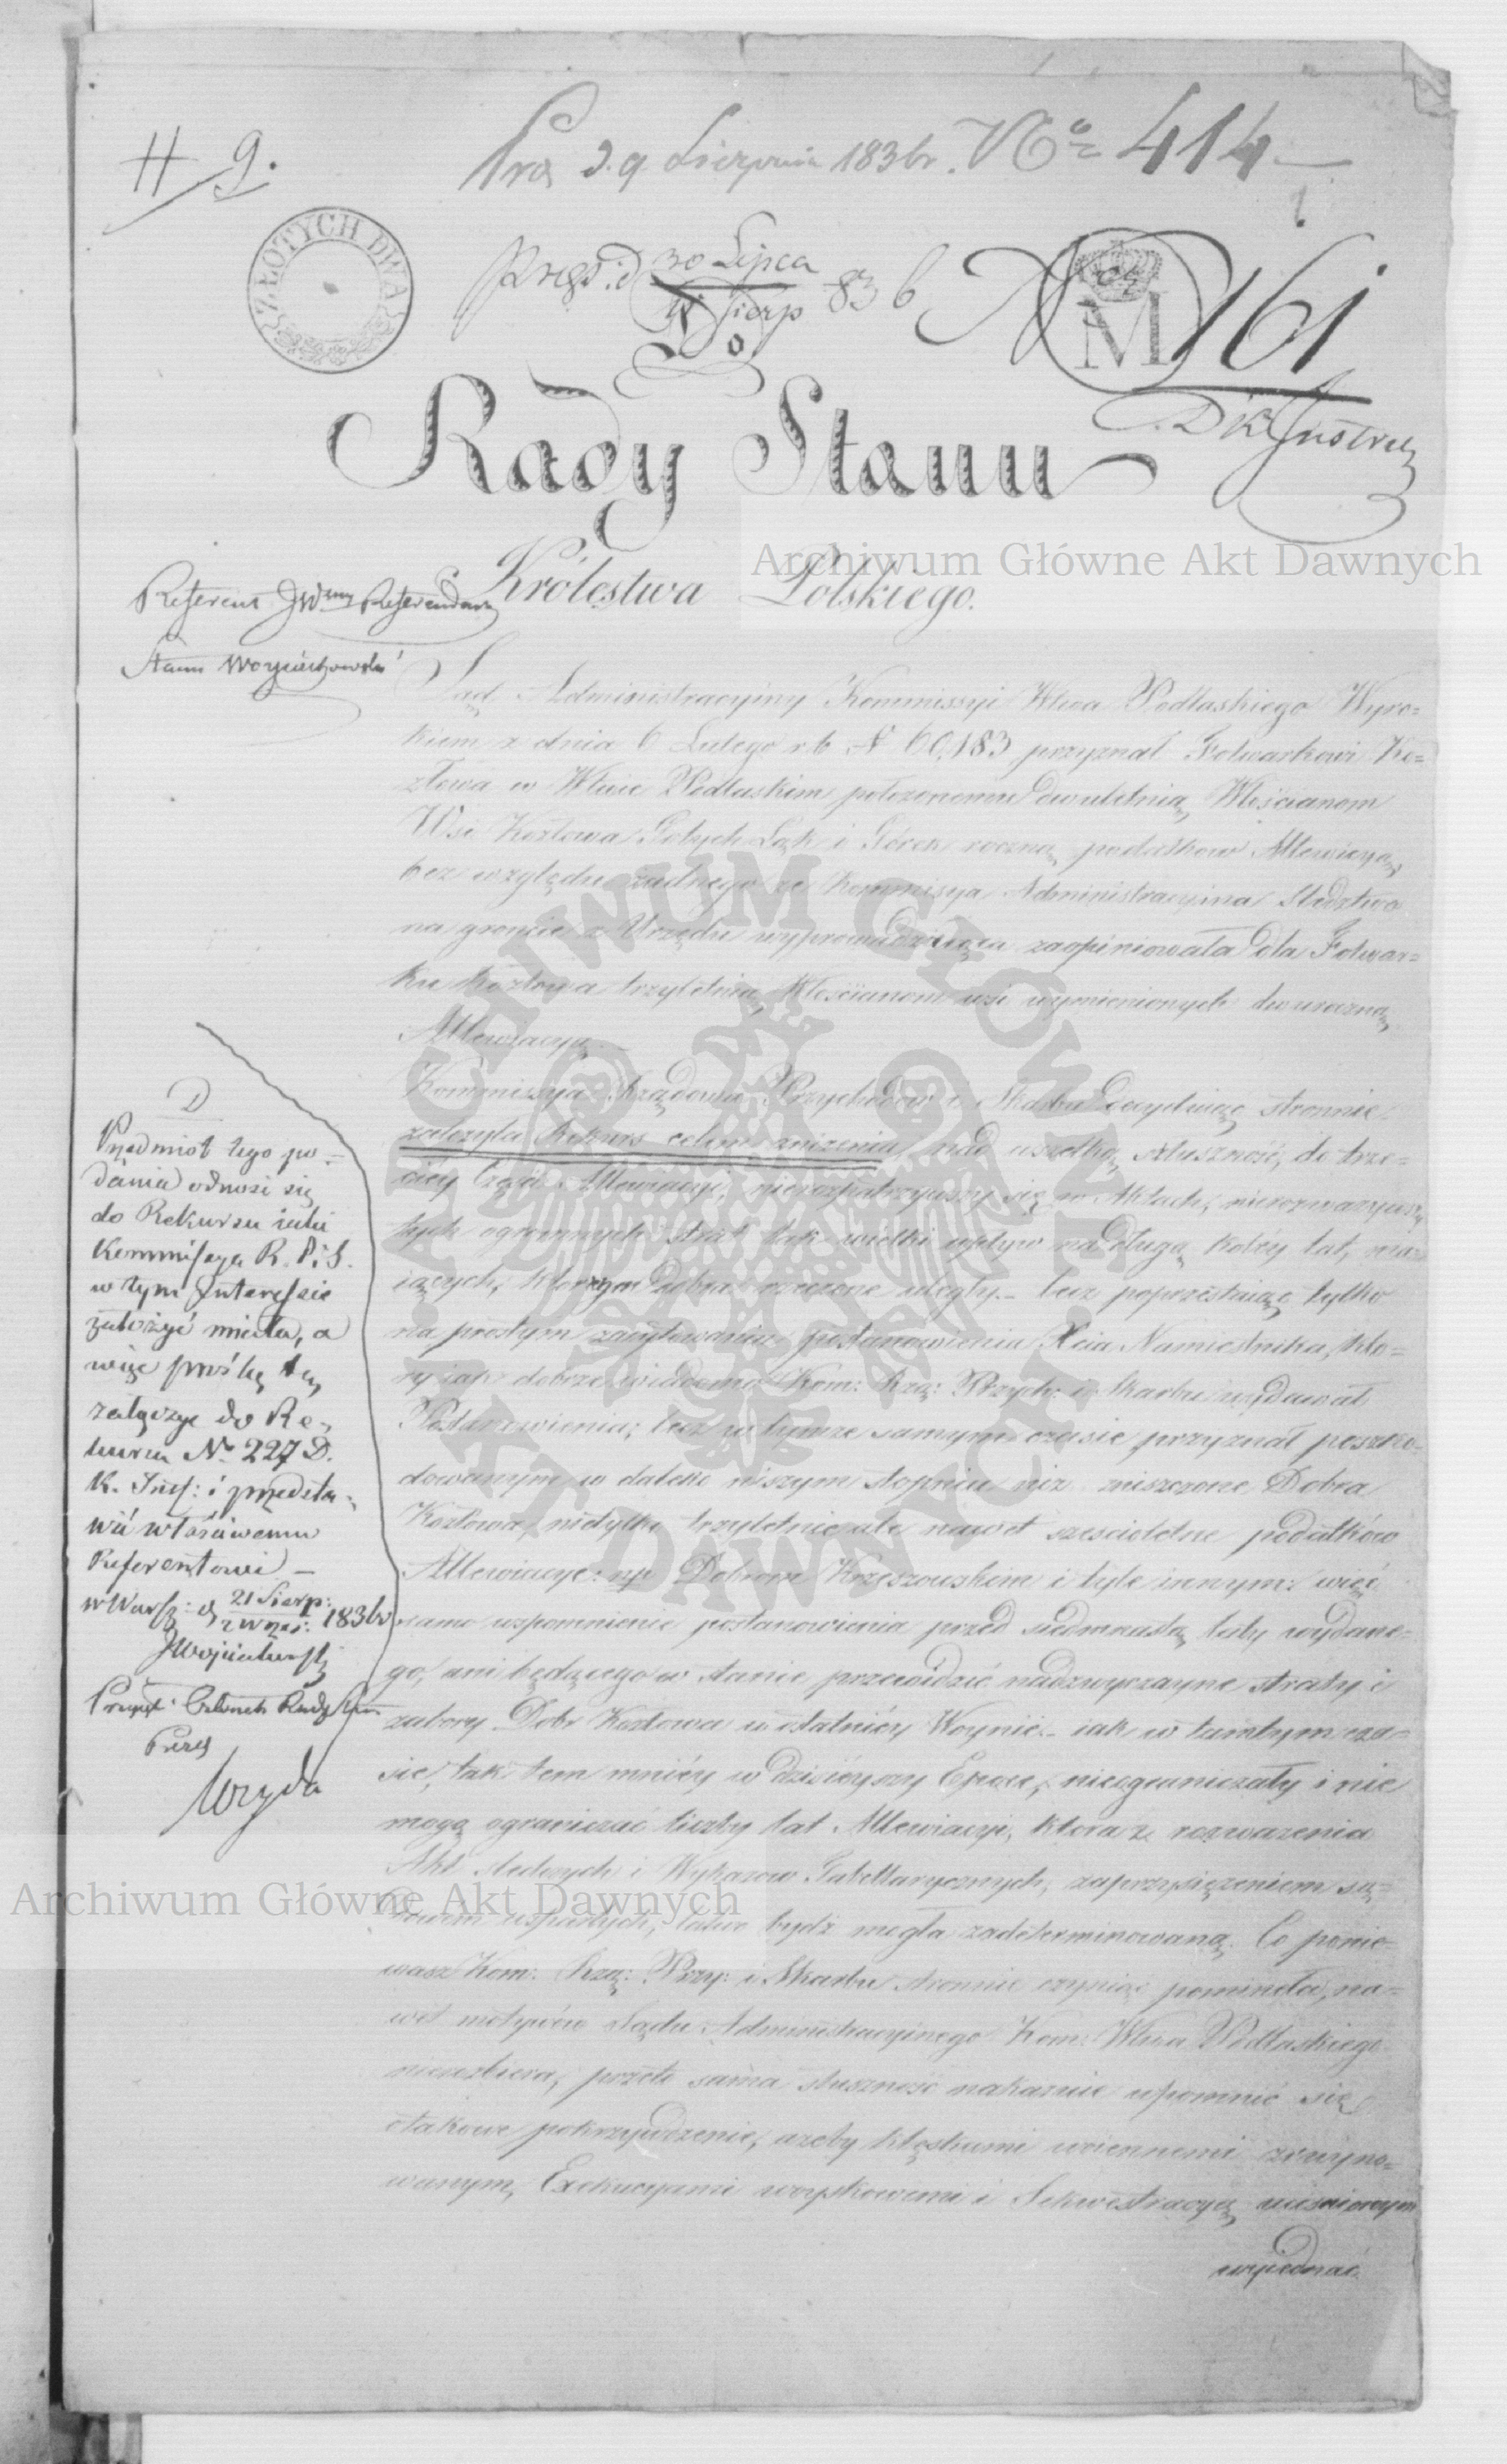 # 9.
Pra d. 9. Sierpnia 1836 r. No 414
ZŁOTYCH DWA
prez. d 30 Lipca
11 Sierp 836
N 161
M
D K Instruc
Do
Rady Stanu
Królestwa Polskiego.
Archiwum Główne Akt Dawnych
Referent JWny Referendarz
Stanu Woyciechowski
Sąd Administracyiny Kommissyi Wtwa Podlaskiego Wyro=
kiem z dnia 6 Lutego r. b. N 60,183 przyznał Folwarkowi Ko=
złowa w Wtwie Podlaskim położonemu dwuletnią, Włościanom
Wsi Kozłowa Gołych Łąk i Górek roczną podatków Allewiacyą,
bez względu żadnego że Kommisya Administracyina Śledztwo
na gróncie z Urzędu wyprowadzaiąca zaopiniowała dla Folwar=
ku Kozłowa trzyletnią, Włościanom wsi wymienionych dwuroczną
Allewiacyą.
Kommissya Rządowa Przychodów i Skarbu decyduiąc stronnie
założyła Rekurs celem zniżenia, nad wszelką słuszność, do trze=
ciéy Części Allewiacyi, nierozpatrzywszy się w Aktach, nierozważywszy
tych ogromnych strat tak wielki wpływ na długą koléy lat, ma=
iących, którym Dobra rzeczone uległy. – lecz poprzestaiąc tylko
na prostym zacytowaniu postanowienia Xcia Namiestnika, któ=
ry iak dobrze wiadomo Kom: Rzą: Przych: i Skarbu wydawał
Postanowienia; lecz w tymże samym czasie przyznał poszko=
dowanym w daleko niższym stopniu niż zniszczone Dobra
Kozłowa, nietylko trzyletnie ale nawet sześcioletnie podatków
Allewiacye: np Dobrom Krzeszowskim i tyle innym: więc
samo wspomnienie postanowienia przed siedmnastą laty wydane=
go, ani będącego w stanie przewidzić nadzwyczayne straty i
zabory Dobr Kozłowa w ostatniéy Woynie – iak w tamtym cza=
sie, tak tem mniéy w dzisiéyszy Epoce, nieograniczały i nie
mogą ograniczać liczby lat Allewiacyi, która z rozważenia
Akt śledczych i Wykazow Tabellarycznych, zaprzysiężeniem są=
dowem wspartych, łatwo bydź mogła zadeterminowaną. Co ponie=
waż Kom: Rzą: Przy: i Skarbu stronnie czyniąc pominęła, na=
wet motywów Sądu Administracyinego Kom: Wtwa Podlaskiego
niezbiera, przeto sama słuszność nakazuie upomnić się
o takowe pokrzywdzenie, ażeby klęskami woiennemi zruyno=
wanym, Exekucyami woyskowemi i Sekwestracyą uciśnionym
wyiednać
D
Przedmiot tego po=
dania odnosi się
do Rekursu iaki
Kommissya R. P. i S.
w tym Interessie
założyć miała, a
więc prośbę tę
załączyć do Re=
kursu No 227 D.
K. Inst: i przedsta=
wić właściwemu
Referentowi –
w Warsz: d 21 Sierp:
2 Wrześ: 1836 r
JWoyciechowski
Przyją: Członek Rady Stanu
Prezes
Wyczechowski
ARCHIWUM GŁÓWNE AKT DAWNYCH
Archiwum Główne Akt Dawnych